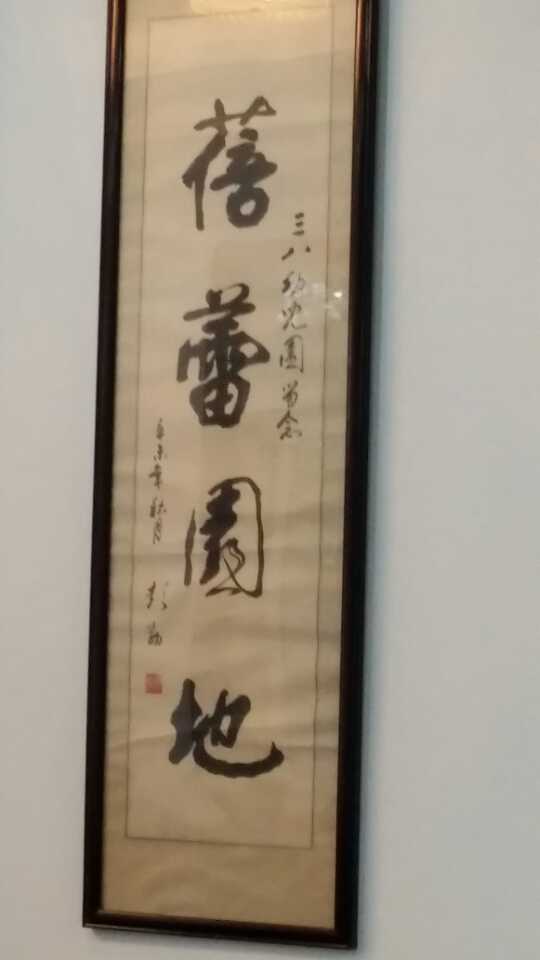 三八幼儿園留念
蓓蕾園地
辛未年秋月
彭